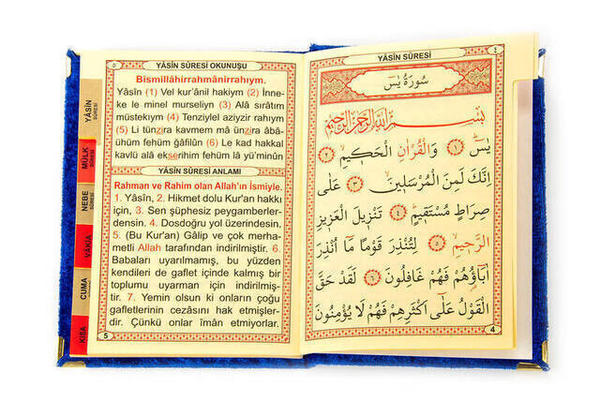 ٥
YÂSÎN SÛRESİ OKUNUŞU
Bismillâhirrahmânirrahıym.
Yâsîn (1) Vel kur'ânil hakiym (2) İnne-
ke le minel murseliyn (3) Alâ sırâtım
müstekıym (4) Tenziylel aziyzir rahıym
(5) Li tünzira kavmem mâ ünzira âbâ-
ühüm fehüm ğâfilûn (6) Le kad hakkal
kavlü alâ ekserihim fehüm lâ yü'minûn
YÂSÎN SÛRESİ ANLAMI
Rahman ve Rahim olan Allah'ın İsmiyle.
1. Yâsîn, 2. Hikmet dolu Kur'an hakkı
için, 3. Sen şüphesiz peygamberler-
densin. 4. Dosdoğru yol üzerindesin,
5. (Bu Kur'an) Gâlip ve çok merha-
metli Allah tarafından indirilmiştir. 6.
Babaları uyarılmamış, bu yüzden
kendileri de gaflet içinde kalmış bir
toplumu uyarman için indirilmiş-
tir. 7. Yemin olsun ki onların çoğu
gafletlerinin cezasını hak etmişler-
dir. Çünkü onlar îmân etmiyorlar.
5
YÂSÎN SÛRESİ
MÜLK SÛRESİ
NEBE SÛRESİ
VÂKIA
CUMA
KISA
YÂSÎN SÛRESİ
٤
سُورَةُ يٰسٓ
بِسْمِ اللّٰهِ الرَّحْمٰنِ الرَّحِيمِ
يٰسٓ ﴿١﴾ وَالْقُرْاٰنِ الْحَكِيمِ ﴿٢﴾
اِنَّكَ لَمِنَ الْمُرْسَلِينَ ﴿٣﴾ عَلٰى
صِرَاطٍ مُسْتَقِيمٍ ﴿٤﴾ تَنْزِيلَ الْعَزِيزِ
الرَّحِيمِ ﴿٥﴾ لِتُنْذِرَ قَوْمًا مَٓا اُنْذِرَ
اٰبَٓاؤُهُمْ فَهُمْ غَافِلُونَ ﴿٦﴾ لَقَدْ حَقَّ
الْقَوْلُ عَلٰٓى اَكْثَرِهِمْ فَهُمْ لَا يُؤْمِنُونَ
4